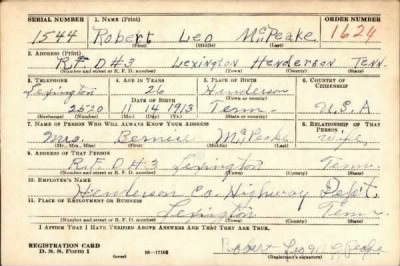 SERIAL NUMBER 1. NAME (Print) ORDER NUMBER
1544 Robert Leo McPeake 1624
(First) (Middle) (Last)
2. ADDRESS (Print)
R.F.D #3 Lexington Henderson Tenn.
(Number and street or R. F. D. number) (Town) (County) (State)
3. TELEPHONE 4. AGE IN YEARS 5. PLACE OF BIRTH 6. COUNTRY OF CITIZENSHIP
Lexington 26 Henderson
DATE OF BIRTH (Town or county)
2520 11 14 1913 Tenn. U.S.A
(Exchange) (Number) (Mo.) (Day) (Yr.) (State or country)
7. NAME OF PERSON WHO WILL ALWAYS KNOW YOUR ADDRESS 8. RELATIONSHIP OF THAT PERSON
Mrs. McPeake wife
(Mr., Mrs., Miss) (First) (Middle) (Last)
9. ADDRESS OF THAT PERSON
R.F.D #3 Lexington Tenn.
(Number and street or R. F. D. number) (Town) (County) (State)
10. EMPLOYER'S NAME
Henderson Co. Highway Dep't.
11. PLACE OF EMPLOYMENT OR BUSINESS
Lexington Tenn.
(Number and street or R. F. D. number) (Town) (County) (State)
I AFFIRM THAT I HAVE VERIFIED ABOVE ANSWERS AND THAT THEY ARE TRUE.
REGISTRATION CARD Robert Leo McPeake
D. S. S. Form 1 (Registrant's signature)